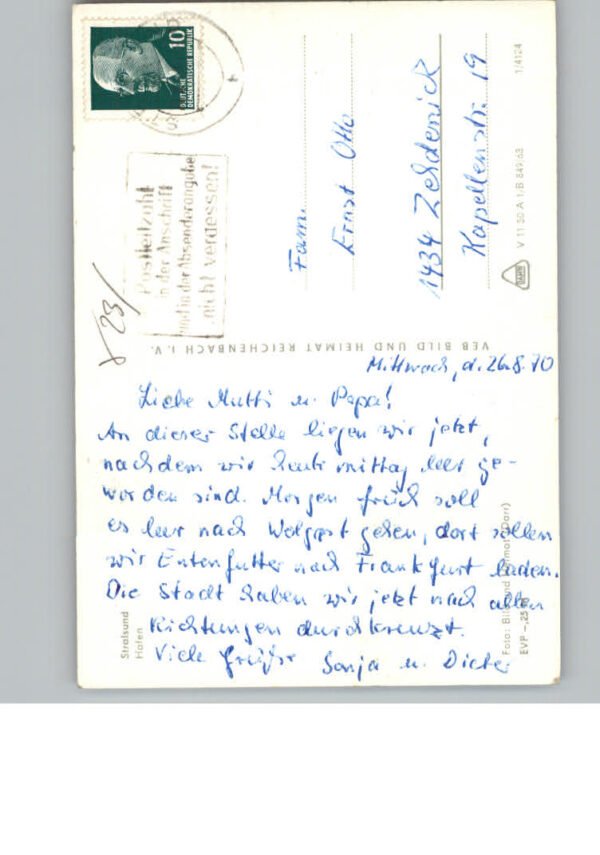 10
DEUTSCHE
DEMOKRATISCHE REPUBLIK
Postleitzahl
in der Anschrift
und in der Absenderangabe
nicht vergessen!
Fam.
Ernst Otto
1434 Zehdenick
Kapellenstr. 19
V 11 50 A 1/B 849/68 1/4124
VEB BILD UND HEIMAT REICHENBACH I. V.
23/
Mittwoch, d. 26.8.70
Liebe Mutti u. Papa!
An dieser Stelle liegen wir jetzt,
nachdem wir heute mittag leer ge-
worden sind. Morgen früh soll
es leer nach Wolgast gehen, dort sollen
wir Entenfutter nach Frankfurt laden.
Die Stadt haben wir jetzt nach allen
Richtungen durchkreuzt.
Viele Grüße Sonja u. Dieter
Stralsund
Hafen
Foto: Bild und Heimat (Darr)
EVP -,25